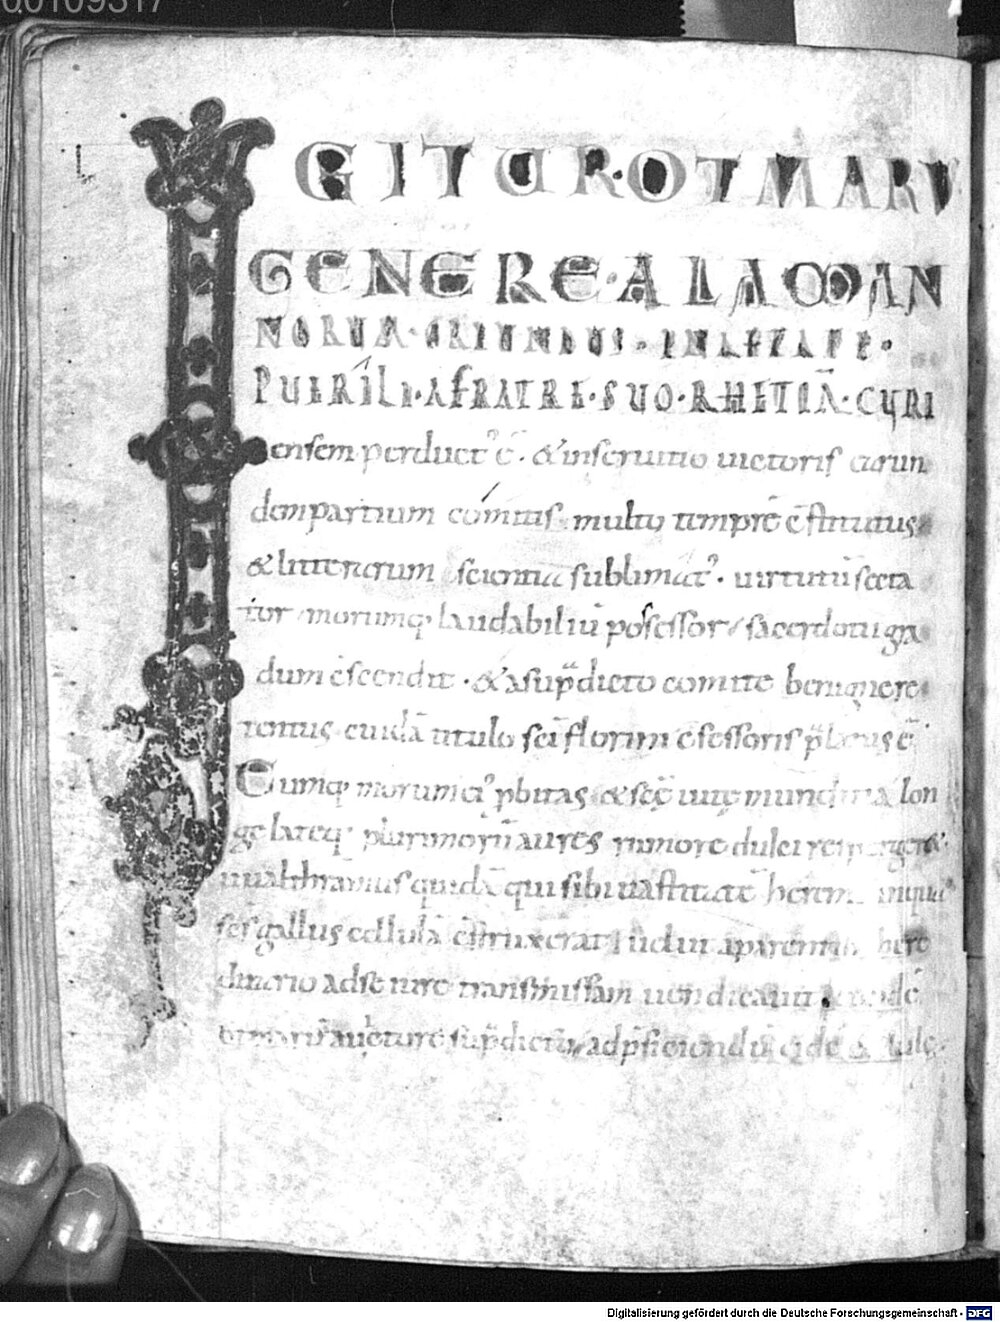 00109317
IGITUR OTMARU
GENERE·ALAMAN
NORUM·ORIUNDUS·IN AETATE·
PUERILI·A FRATRE·SUO·RHETIĀ·CURI
ensem perduct᾽ ē· & in seruitio uictoris earun
dem partium comitis multo tempre cstitutus
& litterarum scientia sublimat᾽· uirtutū secta
tor morumq; laudabiliū possessor sacerdotii gra
dum cscendit· & a sup̄dicto comite benigne re
tentus cuidā titulo sc̄i florini cfessoris p̄latus ē
Cumq; morum ei᾽ pbitas & seq̄ uitę munditia lon
ge lateq; plurimorū aures rumore dulci respergeret·
uualthramus quidā qui sibi uastitatē heremi in qua
scs gallus cellulā cstruxerat uelut a parentib; here
ditario ad se iure transmissam uendicauit eunde
otmarū auctore sup̄dictū ad pficiendū eide &